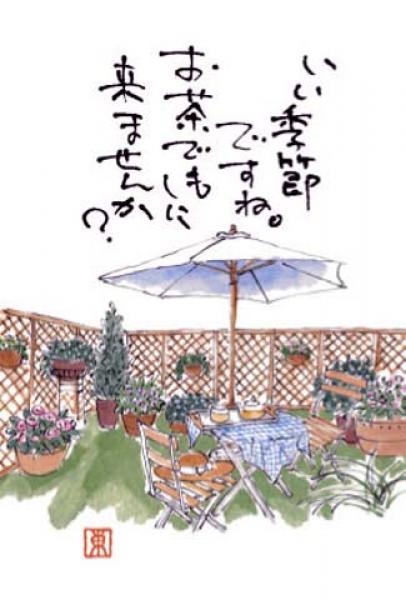 いい季節
ですね。
お茶でもしに
来ませんか?